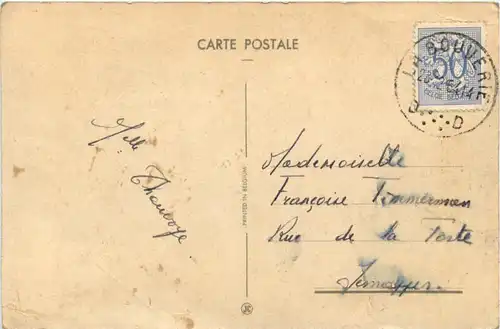 CARTE POSTALE
LA BOUVERIE
50
D D
Melle
PRINTED IN BELGIUM
Mademoiselle
Françoise Timmerman
Rue de la Poste
Jemappes.